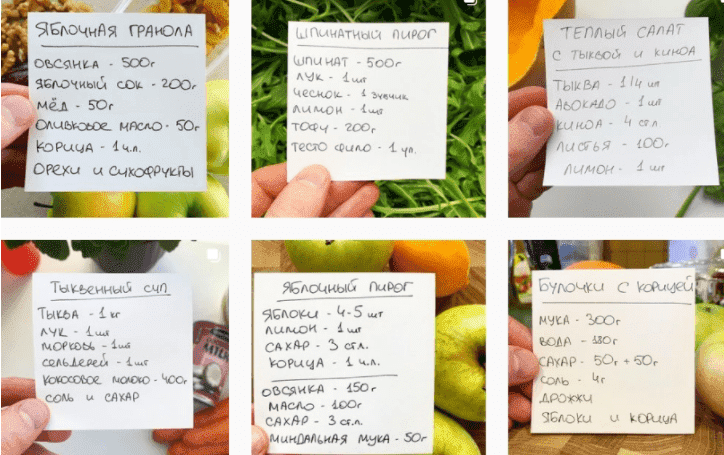 ЯБЛОЧНАЯ ГРАНОЛА
ОВСЯНКА - 500г
ЯБЛОЧНЫЙ СОК - 200г
МЁД - 50г
ОЛИВКОВОЕ МАСЛО - 50г
КОРИЦА - 1 ч.л.
ОРЕХИ И СУХОФРУКТЫ
ШПИНАТНЫЙ ПИРОГ
ШПИНАТ - 500г
ЛУК - 1 шт
ЧЕСНОК - 1 ЗУБЧИК
ЛИМОН - 1шт
ТОФУ - 200г
ТЕСТО ФИЛО - 1 уп.
ТЕПЛЫЙ САЛАТ
С ТЫКВОЙ И КИНОА
ТЫКВА - 1/4 шт
АВОКАДО - 1 шт
КИНОА - 4 ст.л
ЛИСТЬЯ - 100г
ЛИМОН - 1 шт
ТЫКВЕННЫЙ СУП
ТЫКВА - 1 кг
ЛУК - 1 шт
МОРКОВЬ - 1шт
СЕЛЬДЕРЕЙ - 1шт
КОКОСОВОЕ МОЛОКО - 400г
СОЛЬ И САХАР
ЯБЛОЧНЫЙ ПИРОГ
ЯБЛОКИ - 4-5 шт
ЛИМОН - 1 шт
САХАР - 3 ст.л.
КОРИЦА - 1 ч.л.
ОВСЯНКА - 150г
МАСЛО - 100г
САХАР - 3 ст.л.
МИНДАЛЬНАЯ МУКА - 50г
БУЛОЧКИ С КОРИЦЕЙ
МУКА - 300г
ВОДА - 180г
САХАР - 50г + 50г
СОЛЬ - 4г
ДРОЖЖИ
ЯБЛОКИ И КОРИЦА